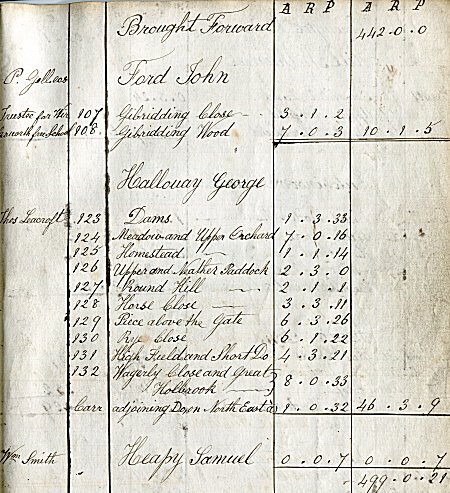 A R P A R P
Brought Forward 442 . 0 . 0
P. Gell Ford John
107 Gibridding Close 3 . 1 . 2
108 Gibridding Wood 7 . 0 . 3 10 . 1 . 5
Hallouay George
Thos Leacroft 123 Dams 1 . 3 . 33
124 Meadow and Upper Orchard 7 . 0 . 16
125 Homestead 1 . 1 . 14
126 Upper and Neather Paddock 2 . 3 . 0
127 Round Hill 2 . 1 . 1
128 Horse Close 3 . 3 . 11
129 Piece above the Gate 6 . 3 . 26
130 Rye Close 6 . 1 . 22
131 High Field and Short Do 4 . 3 . 21
132 Wagerly Close and Great
Holbrook 8 . 0 . 33
Carr adjoining Down North East 1 . 0 . 32 46 . 3 . 9
Wm Smith Heapy Samuel 0 . 0 . 7 0 . 0 . 7
499 . 0 . 21